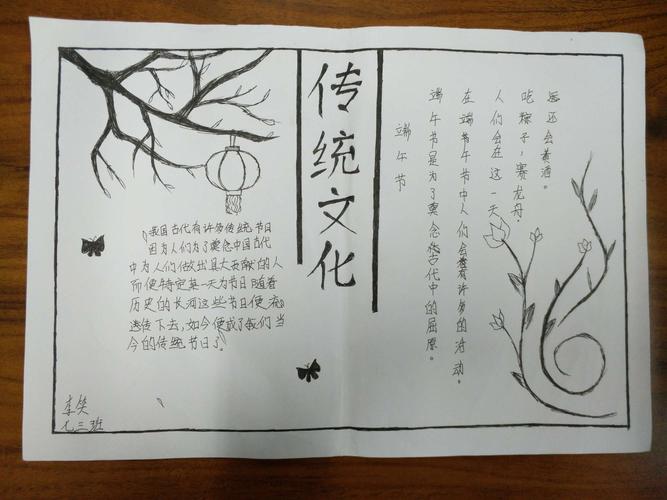 传统文化
我国古代有许多传统节日
因为人们为了奠念中国古代
中为人们做出巨大贡献的人
而便特定某一天为节日随着
历史的长河这些节日便流
遗传下去,如今便成了我们当
今的传统节日了。
端午节
端午节是为了奠念古代中的屈原。
在端午节中人们会有许多的活动。
人们会在这一天
吃粽子,赛龙舟,
还会黄酒。
李笑
七三班